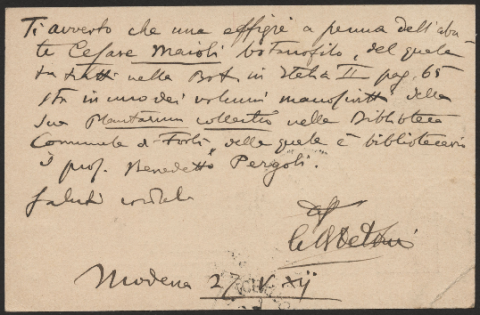 Ti avverto che una effigie a penna dell'aba-
te Cesare Maioli botanofilo, del quale
tu tratti nella Bot. in Italia II pag. 65
sta in uno dei volumi manoscritti della
sua Plantarum collectio nella Biblioteca
Comunale di Forlì, della quale è bibliotecario
il prof. Benedetto Pergoli.
Saluti cordiali
aff
De Toni
Modena 27 V XII